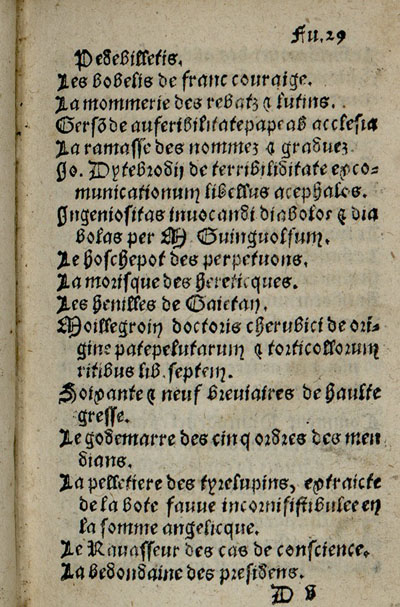 Fu.29
Pedebilletis.
Les bobelis de franc couraige.
La mommerie des rebatz ⁊ lutins.
Gersõ de auferibilitate pape ab acclesia
La ramasse des nommez ⁊ graduez
Jo. Dytebrodij de terribiliditate exco-
municationum libellus acephalos.
Ingeniositas inuocandi diabolos ⁊ dia
bolas per M. Guinguolfum.
Le hoschepot des perpetuons.
La morisque des hereticques.
Les henilles de Gaietan.
Moillegroin doctoris cherubici de ori-
gine patepelutarum ⁊ torticollorum
ritibus lib. septem.
Soixante ⁊ neuf breuiaires de haulte
gresse.
Le godemarre des cinq ordres des men
dians.
La pelletiere des tyrelupins, extraicte
de la bote fauue incornifistibulee en
la somme angelicque.
Le Rauasseur des cas de conscience.
La bedondaine des presidens.
D 8